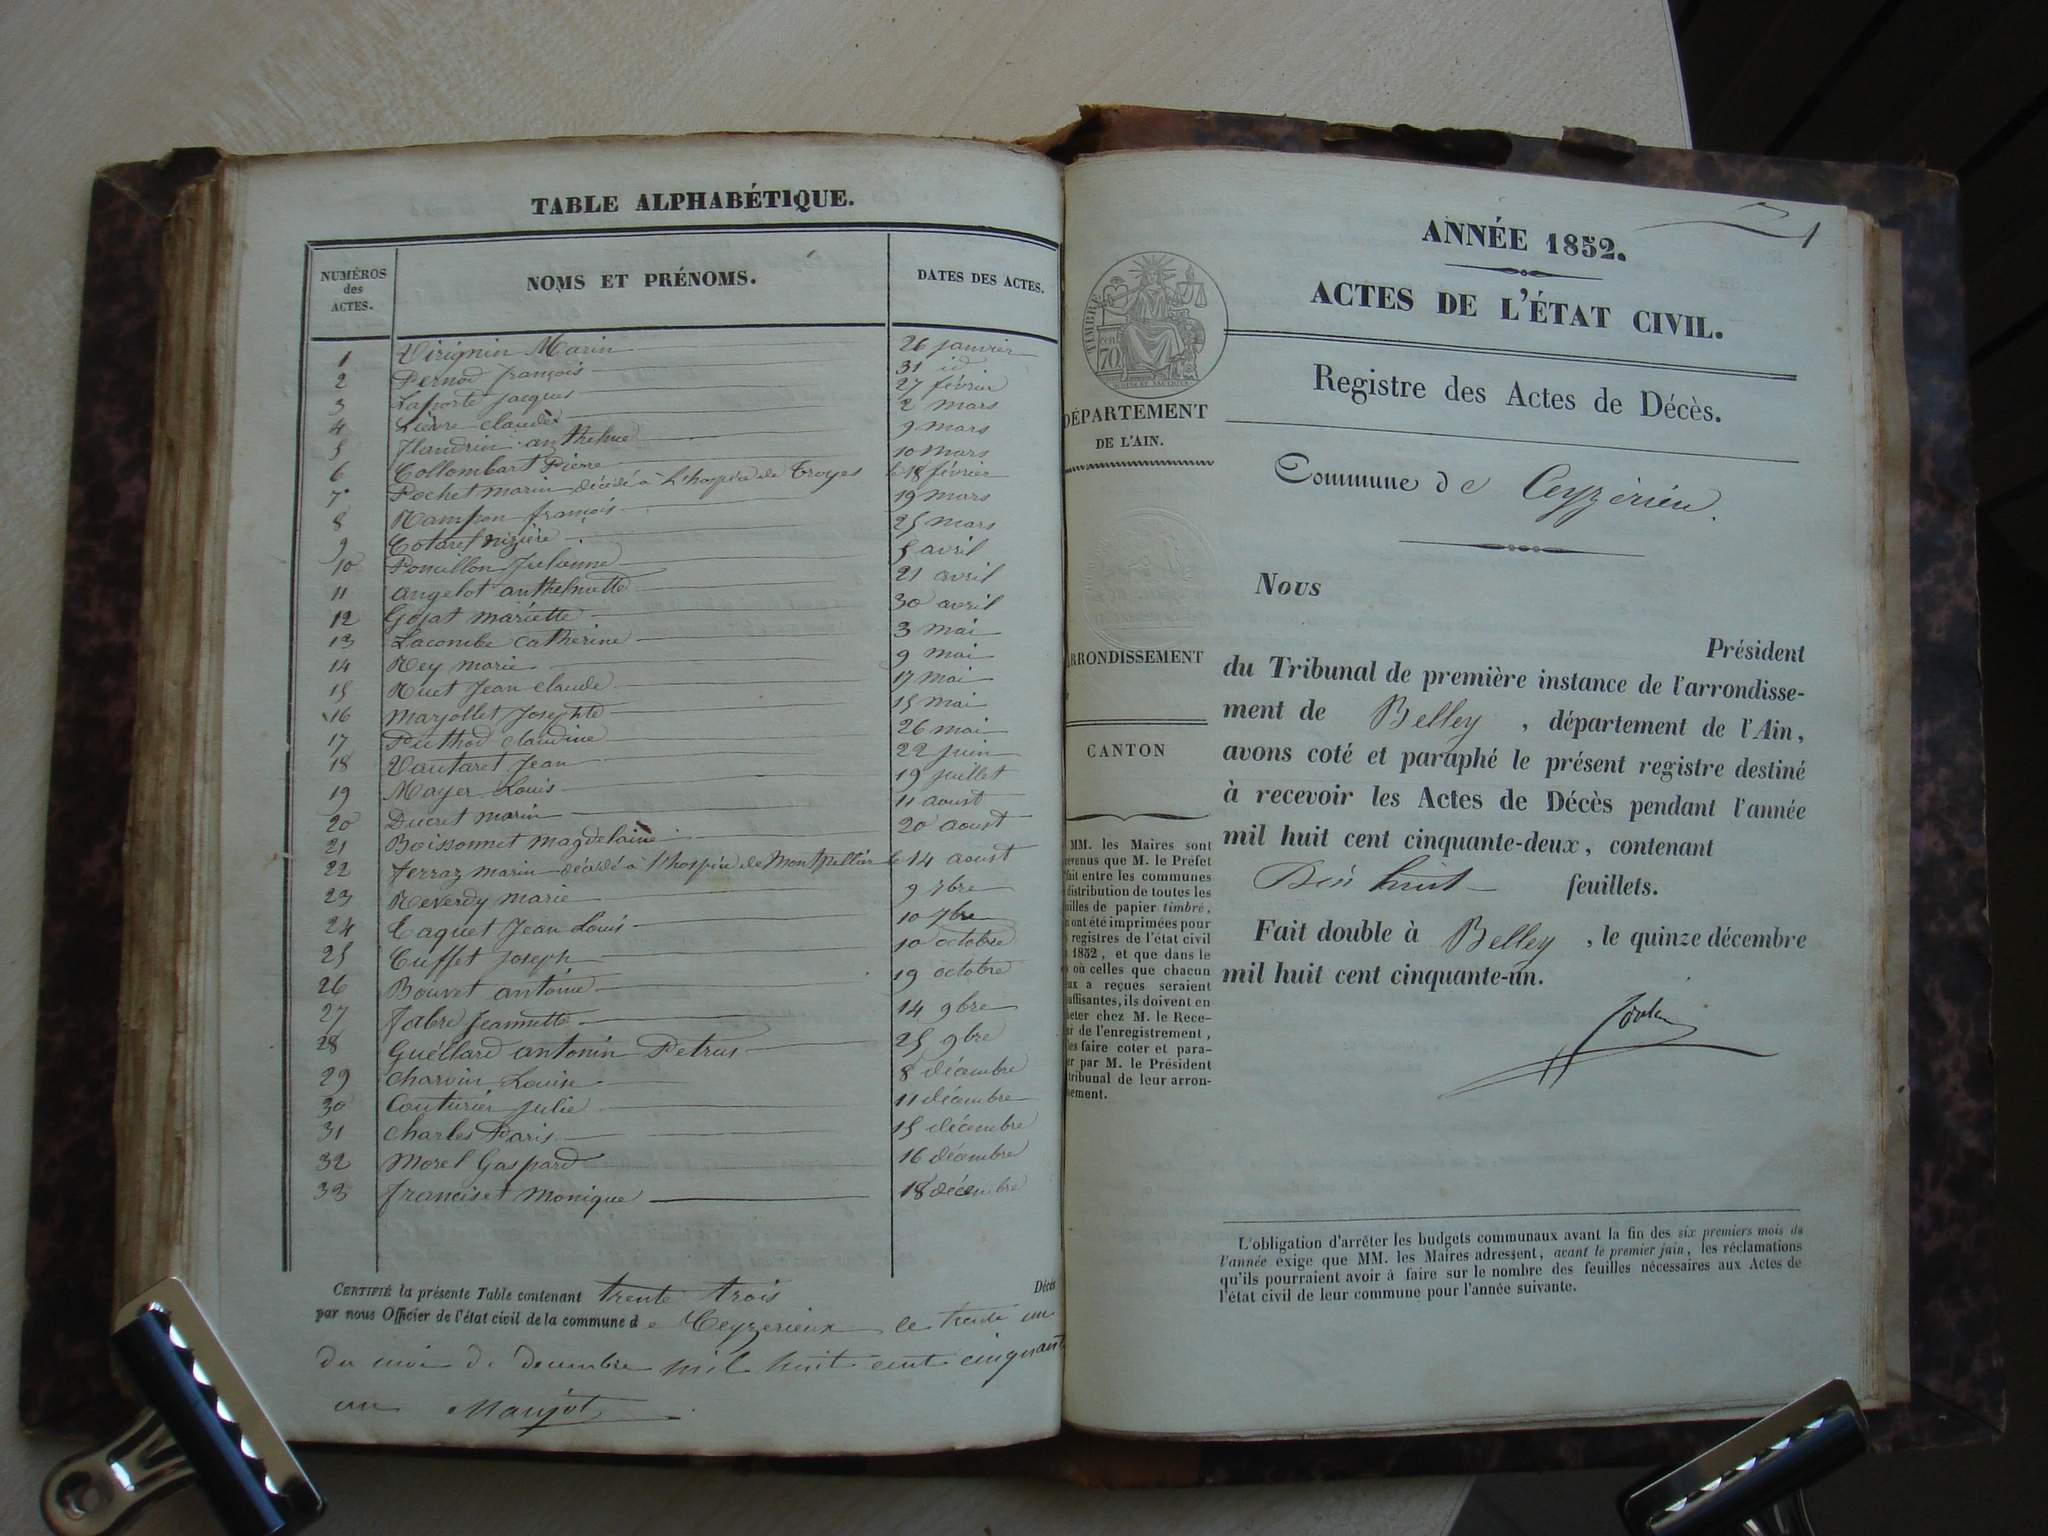 TABLE ALPHABÉTIQUE.
NUMÉROS des ACTES. NOMS ET PRÉNOMS. DATES DES ACTES.
1 Virignin Marin 26 janvier
2 Pernod françois 31 id
3 Laporte Jacques 27 février
4 Lièvre claude 2 mars
5 flandrin anthelme 9 mars
6 Collombart Pierre 10 mars
7 Pochet marin décédé à l'hospice de Troyes le 18 février
8 Rampon françois 19 mars
9 Cotaref nizière 25 mars
10 Pomillon Julienne 5 avril
11 angelot anthelmette 21 avril
12 Gojat mariette 30 avril
13 Lacombe catherine 3 mai
14 Rey marie 9 mai
15 Ruet Jean claude 17 mai
16 marjollet Josephte 15 mai
17 Puthod claudine 26 mai
18 Vautaret Jean 22 juin
19 Mayer Louis 19 juillet
20 Ducret marin 11 aoust
21 Boissonnet magdelaine 20 aoust
22 ferraz marin décédé à l'hospice de Montpellier le 14 aoust
23 Reverdy marie 9 7bre
24 Caquet Jean Louis 10 7bre
25 Cuffet Joseph 10 octobre
26 Bouvet antoine 19 octobre
27 fabre Jeannette 14 9bre
28 Guéllard antonin Petrus 25 9bre
29 charvin Louise 8 décembre
30 Couturier julie 11 décembre
31 charles Paris 15 décembre
32 Morel Gaspard 16 décembre
33 franciset monique 18 décembre
CERTIFIÉ la présente Table contenant trente trois Décès
par nous Officier de l'état civil de la commune de Ceyzerieux le trente un
du mois de decembre mil huit cent cinquant
un Maujot
1
ANNÉE 1852.
ACTES DE L'ÉTAT CIVIL.
Registre des Actes de Décès.
TIMBRE
70
DÉPARTEMENT
DE L'AIN.
Commune de Ceyzérieu.
ARRONDISSEMENT
CANTON
MM. les Maires sont
prévenus que M. le Préfet
fait entre les communes
distribution de toutes les
feuilles de papier timbré,
ont été imprimées pour
registres de l'état civil
1852, et que dans le
où celles que chacun
eux a reçues seraient
insuffisantes, ils doivent en
acheter chez M. le Rece-
de l'enregistrement,
les faire coter et para-
pher par M. le Président
tribunal de leur arron-
dissement.
Nous
Président
du Tribunal de première instance de l'arrondisse-
ment de Belley, département de l'Ain,
avons coté et paraphé le présent registre destiné
à recevoir les Actes de Décès pendant l'année
mil huit cent cinquante-deux, contenant
Dix huit feuillets.
Fait double à Belley, le quinze décembre
mil huit cent cinquante-un.
L'obligation d'arrêter les budgets communaux avant la fin des six premiers mois de
l'année exige que MM. les Maires adressent, avant le premier juin, les réclamations
qu'ils pourraient avoir à faire sur le nombre des feuilles nécessaires aux Actes de
l'état civil de leur commune pour l'année suivante.